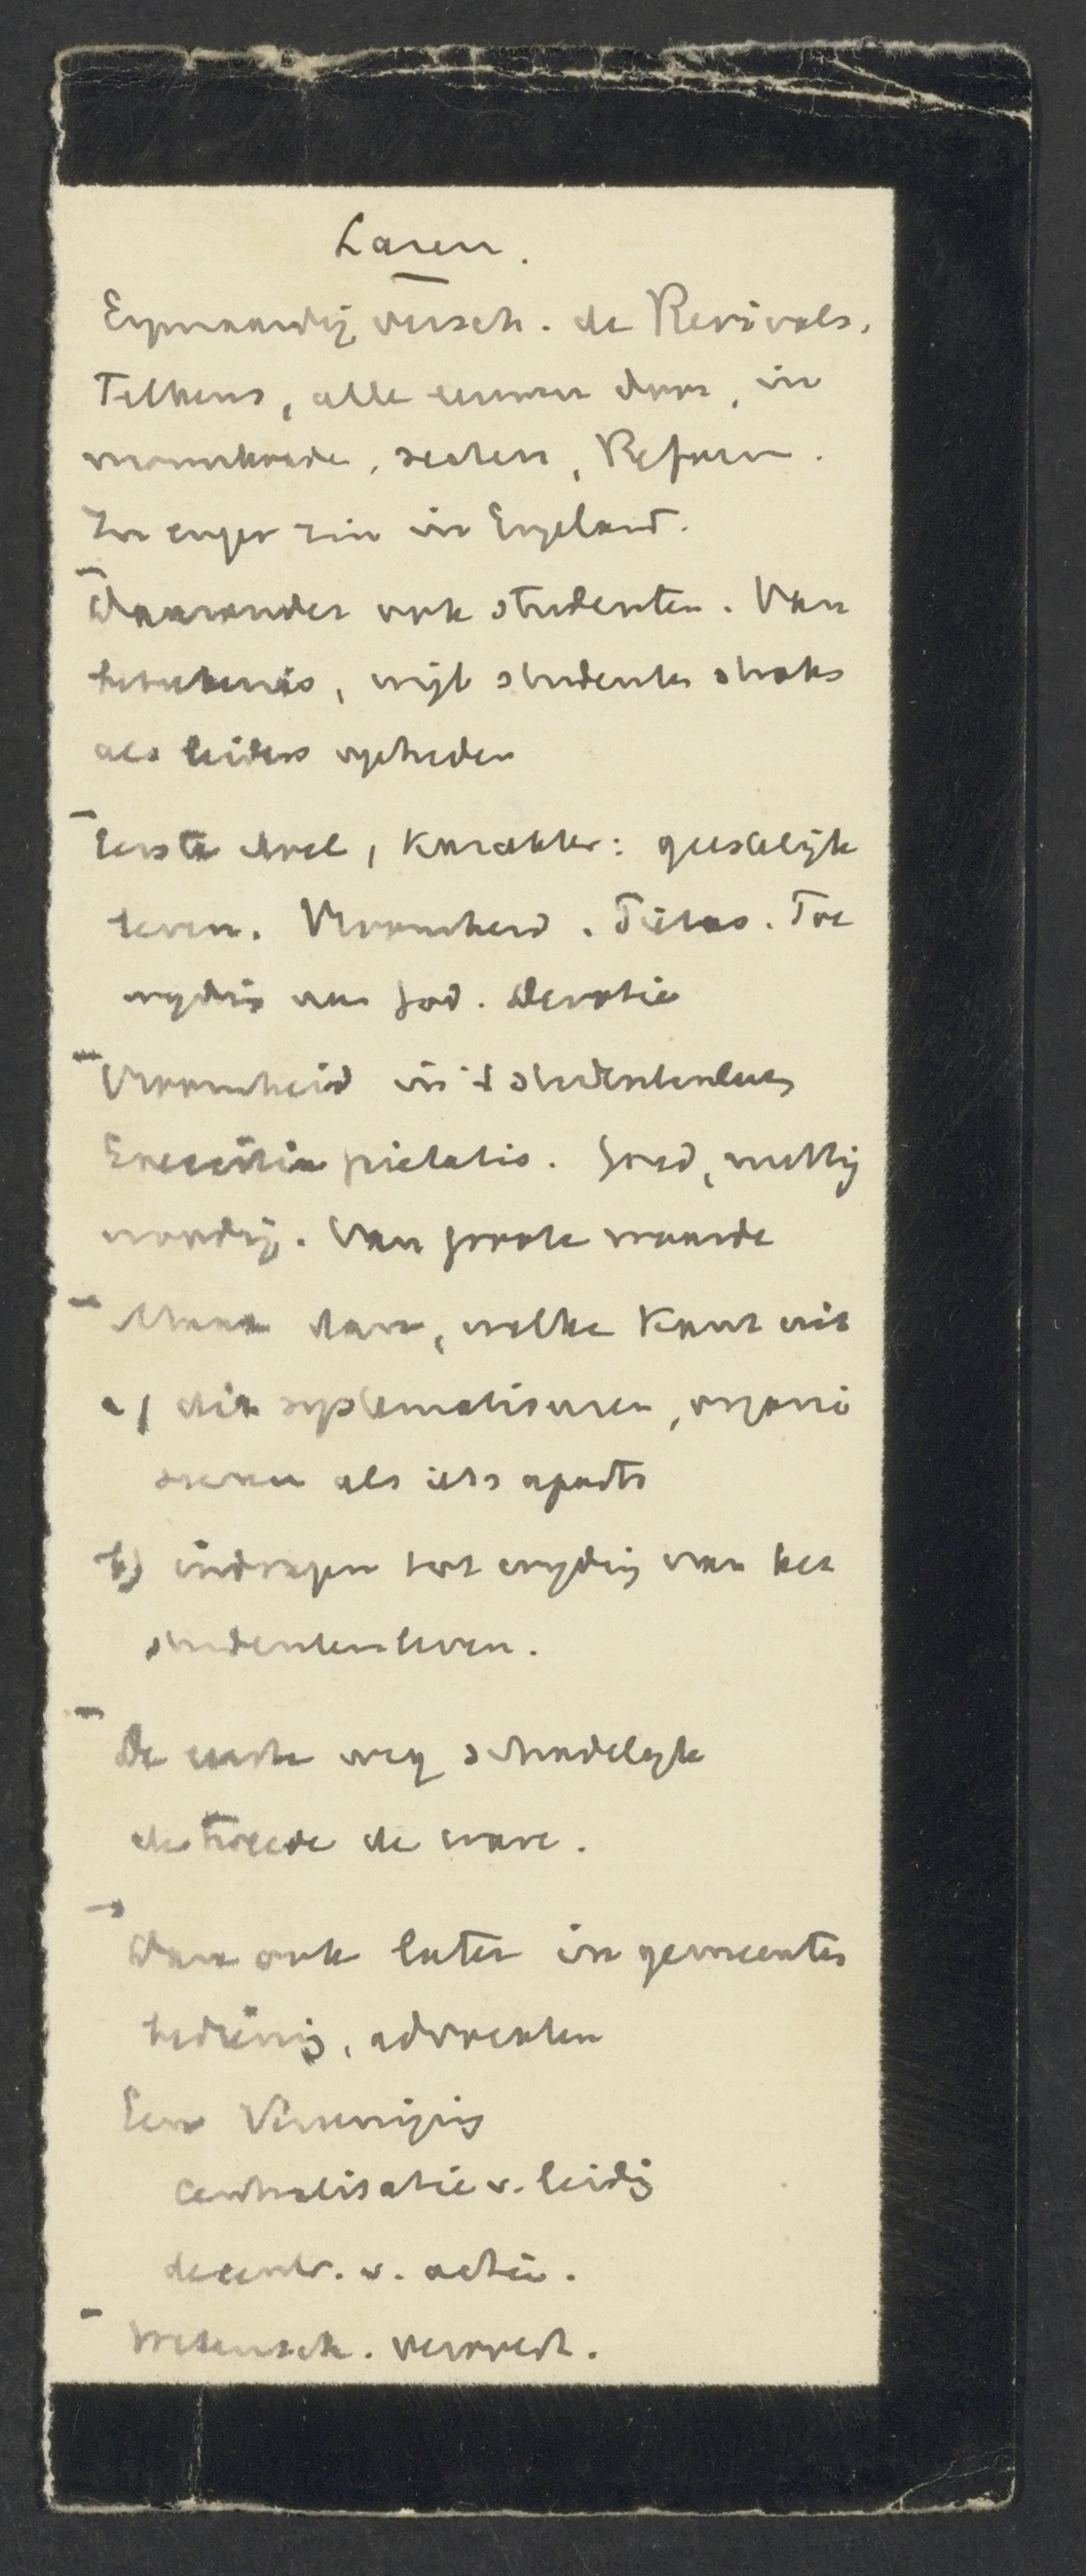 Laren.
Eigenaardig versch. de Revivals.
Telkens, alle eeuwen door, in
monnikorde, secten, Reform.
In enger zin in Engeland.
Daaronder ook studenten. Van
beteekenis, wijl studenten straks
als leiders optreden
Eerste doel, karakter: geestelijk
leven. Vroomheid. Pietas. Toe
wijding aan God. Devotie
Vroomheid in 't studentenleven
Exercitia pietatis. Goed, nuttig
noodig. Van groote waarde
Maar dan, welke kant uit
a) die systematiseeren, organi
seeren als iets aparts
b) indragen tot wijding van het
studentenleven.
De eerste weg schadelijk
de tweede de ware.
Dan ook later in gemeentes
bediening, advocaten
Een Vereeniging
centralisatie v. leidg
decentr. v. actie.
Wetensch. verricht.